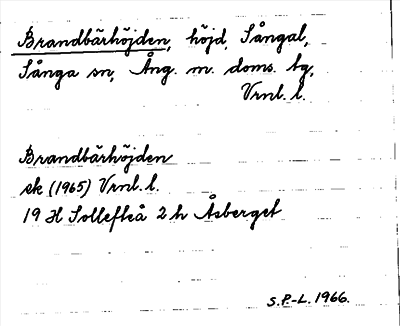 Brandbärhöjden, höjd, Sångal,
Sånga sn, Ång. m. doms. tg,
Vrnl. l.
Brandbärhöjden
sk (1965) Vrnl. l.
19 H Sollefteå 2 h Åsberget
S.P.-L. 1966.